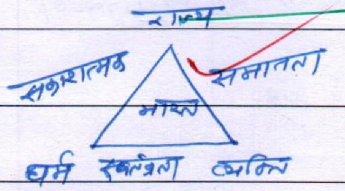 राज्य
सकारात्मक समानता
भारत
धर्म स्वतंत्रता व्यक्ति